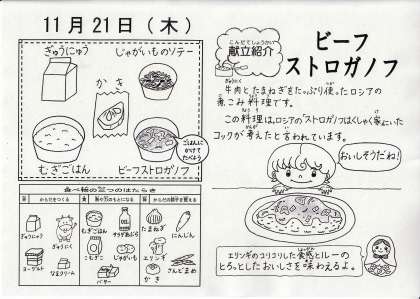 11月21日（木）
ぎゅうにゅう
じゃがいものソテー
かき
むぎごはん
ビーフストロガノフ
ごはんに
かけて
たべよう
こんだてしょうかい
献立紹介
ビーフ
ストロガノフ
ぎゅうにく
牛肉とたまねぎをたっぷり使ったロシアの
煮こみ料理です。
この料理は、ロシアの「ストロガノフはくしゃく家」にいた
コックが考えたと言われています。
おいしそうだね！
食べ物の三つのはたらき
赤 からだをつくる
黄 熱や力のもとになる
緑 からだの調子を整える
ぎゅうにゅう
ぎゅうにく
ヨーグルト
なまクリーム
むぎごはん
サラダあぶら
こむぎこ
じゃがいも
バター
たまねぎ
にんじん
エリンギ
さんどまめ
かき
エリンギのコリコリした食感とルーの
とろっとしたおいしさを味わえるよ。